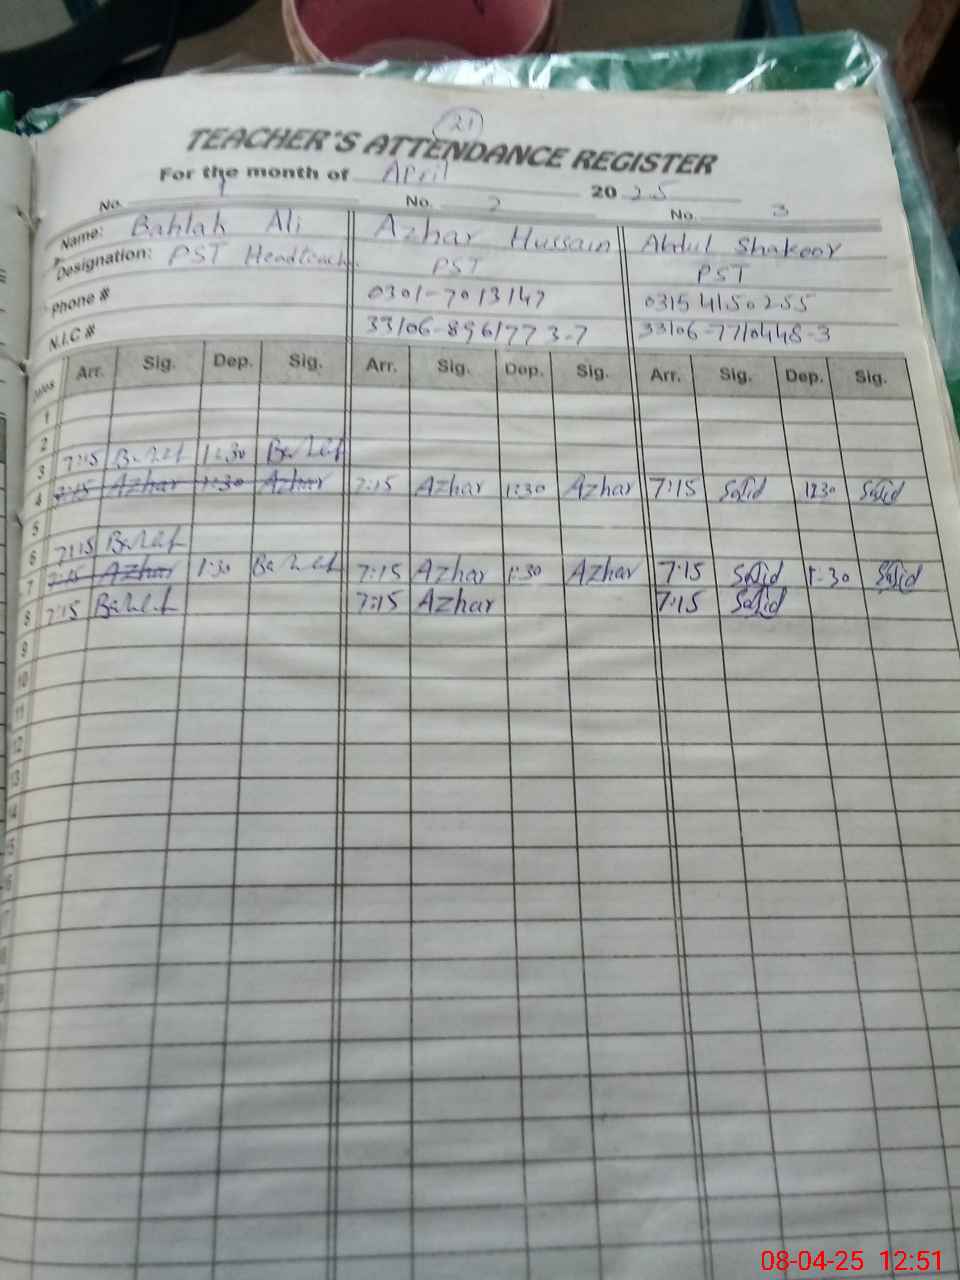 21
TEACHER'S ATTENDANCE REGISTER
For the month of April 2025
No. 1 No. 2 No. 3
Name: Bahlak Ali Azhar Hussain Abdul Shakoor
Designation: PST Headteach. PST PST
Phone # 0301-7013147 0315 4150255
N.I.C # 33106-8961773-7 33106-7710448-3
Dates Arr. Sig. Dep. Sig. Arr. Sig. Dep. Sig. Arr. Sig. Dep. Sig.
1
2
3 7:15 1:30
4 7:15 Azhar 1:30 Azhar 7:15 Azhar 1:30 Azhar 7:15 Sajid 1:30 Sajid
5
6 7:15
7 7:15 Azhar 1:30 7:15 Azhar 1:30 Azhar 7:15 Sajid 1:30 Sajid
8 7:15 7:15 Azhar 7:15 Sajid
9
10
11
12
13
08-04-25 12:51